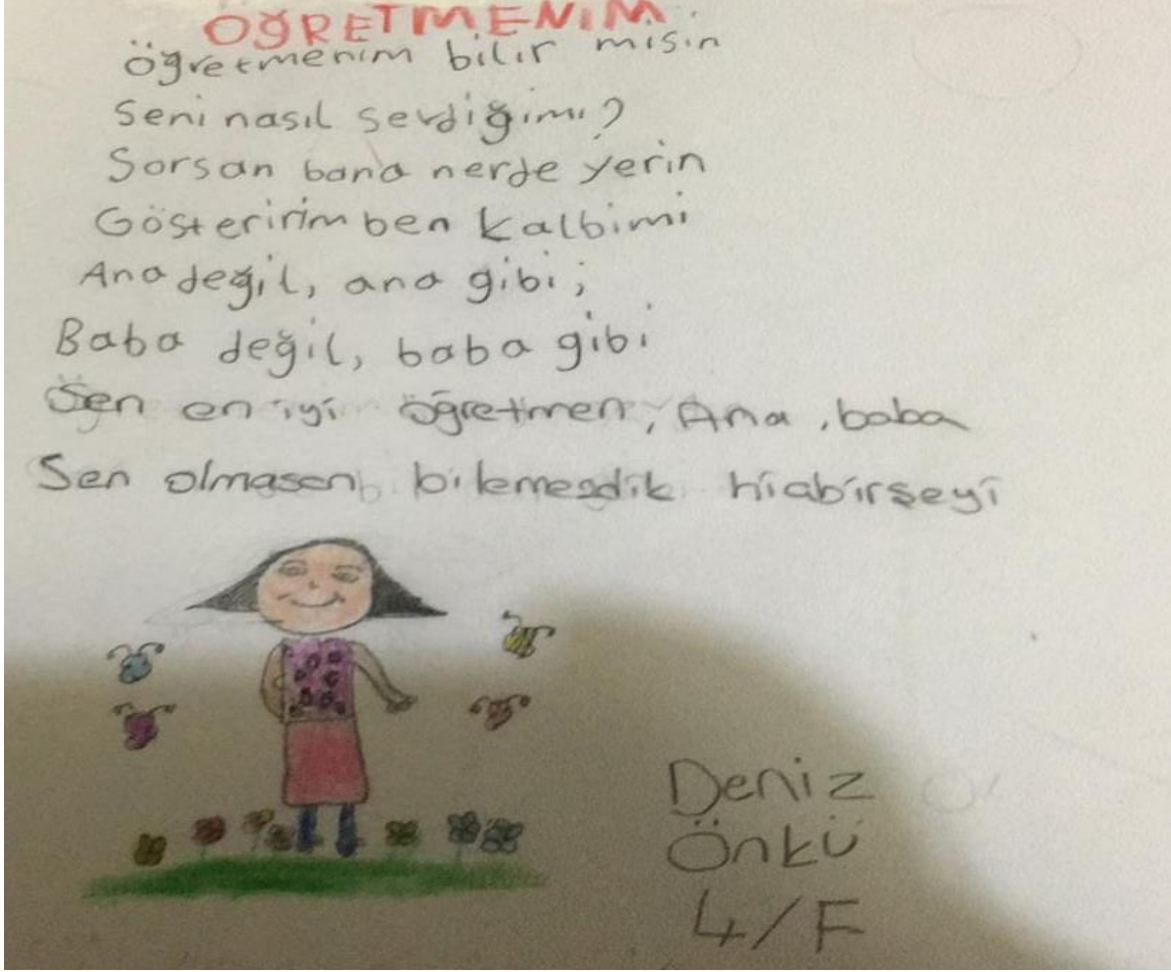 ÖĞRETMENİM
Öğretmenim bilir misin
Seni nasıl sevdiğimi?
Sorsan bana nerde yerin
Gösteririm ben kalbimi
Ana değil, ana gibi;
Baba değil, baba gibi
Sen en iyi öğretmen, Ana, baba
Sen olmasan bilemezdik hiabirşeyi
Deniz
Önkü
4/F